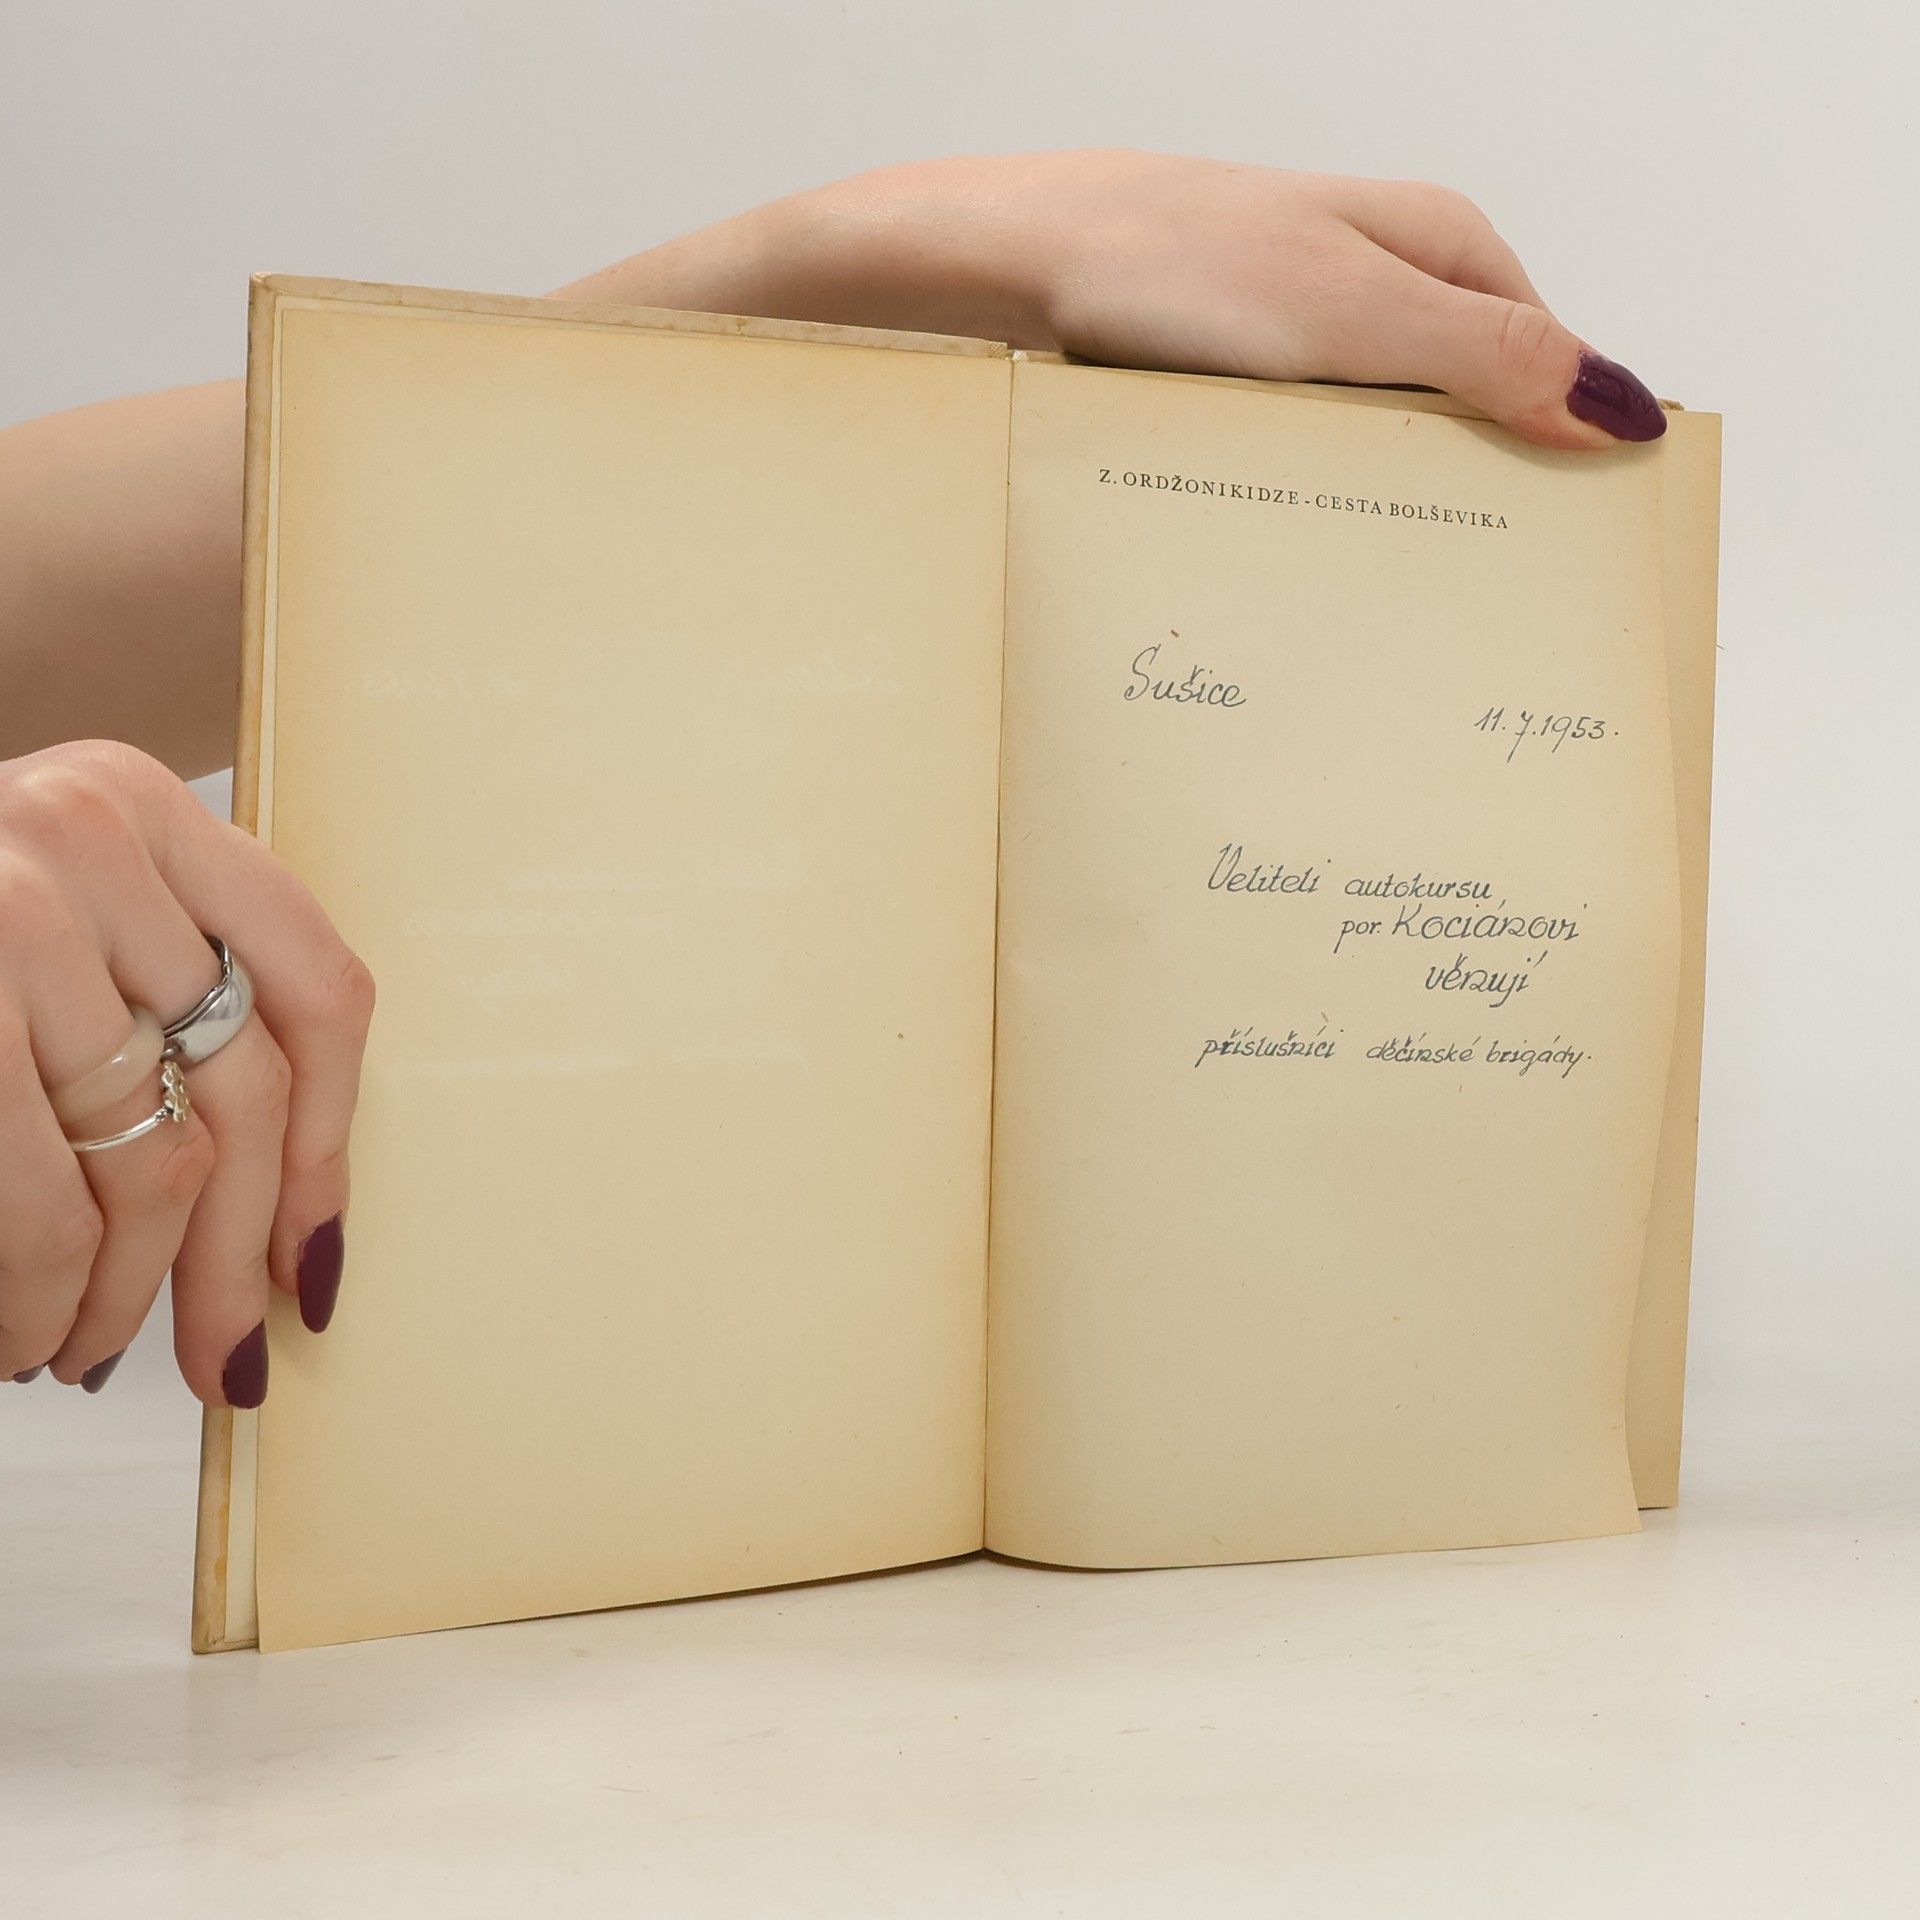 Z. ORDŽONIKIDZE - CESTA BOLŠEVIKA
Sušice
11. 7. 1953.
Veliteli autokursu,
por. Kociánovi
věnují
příslušníci děčínské brigády.